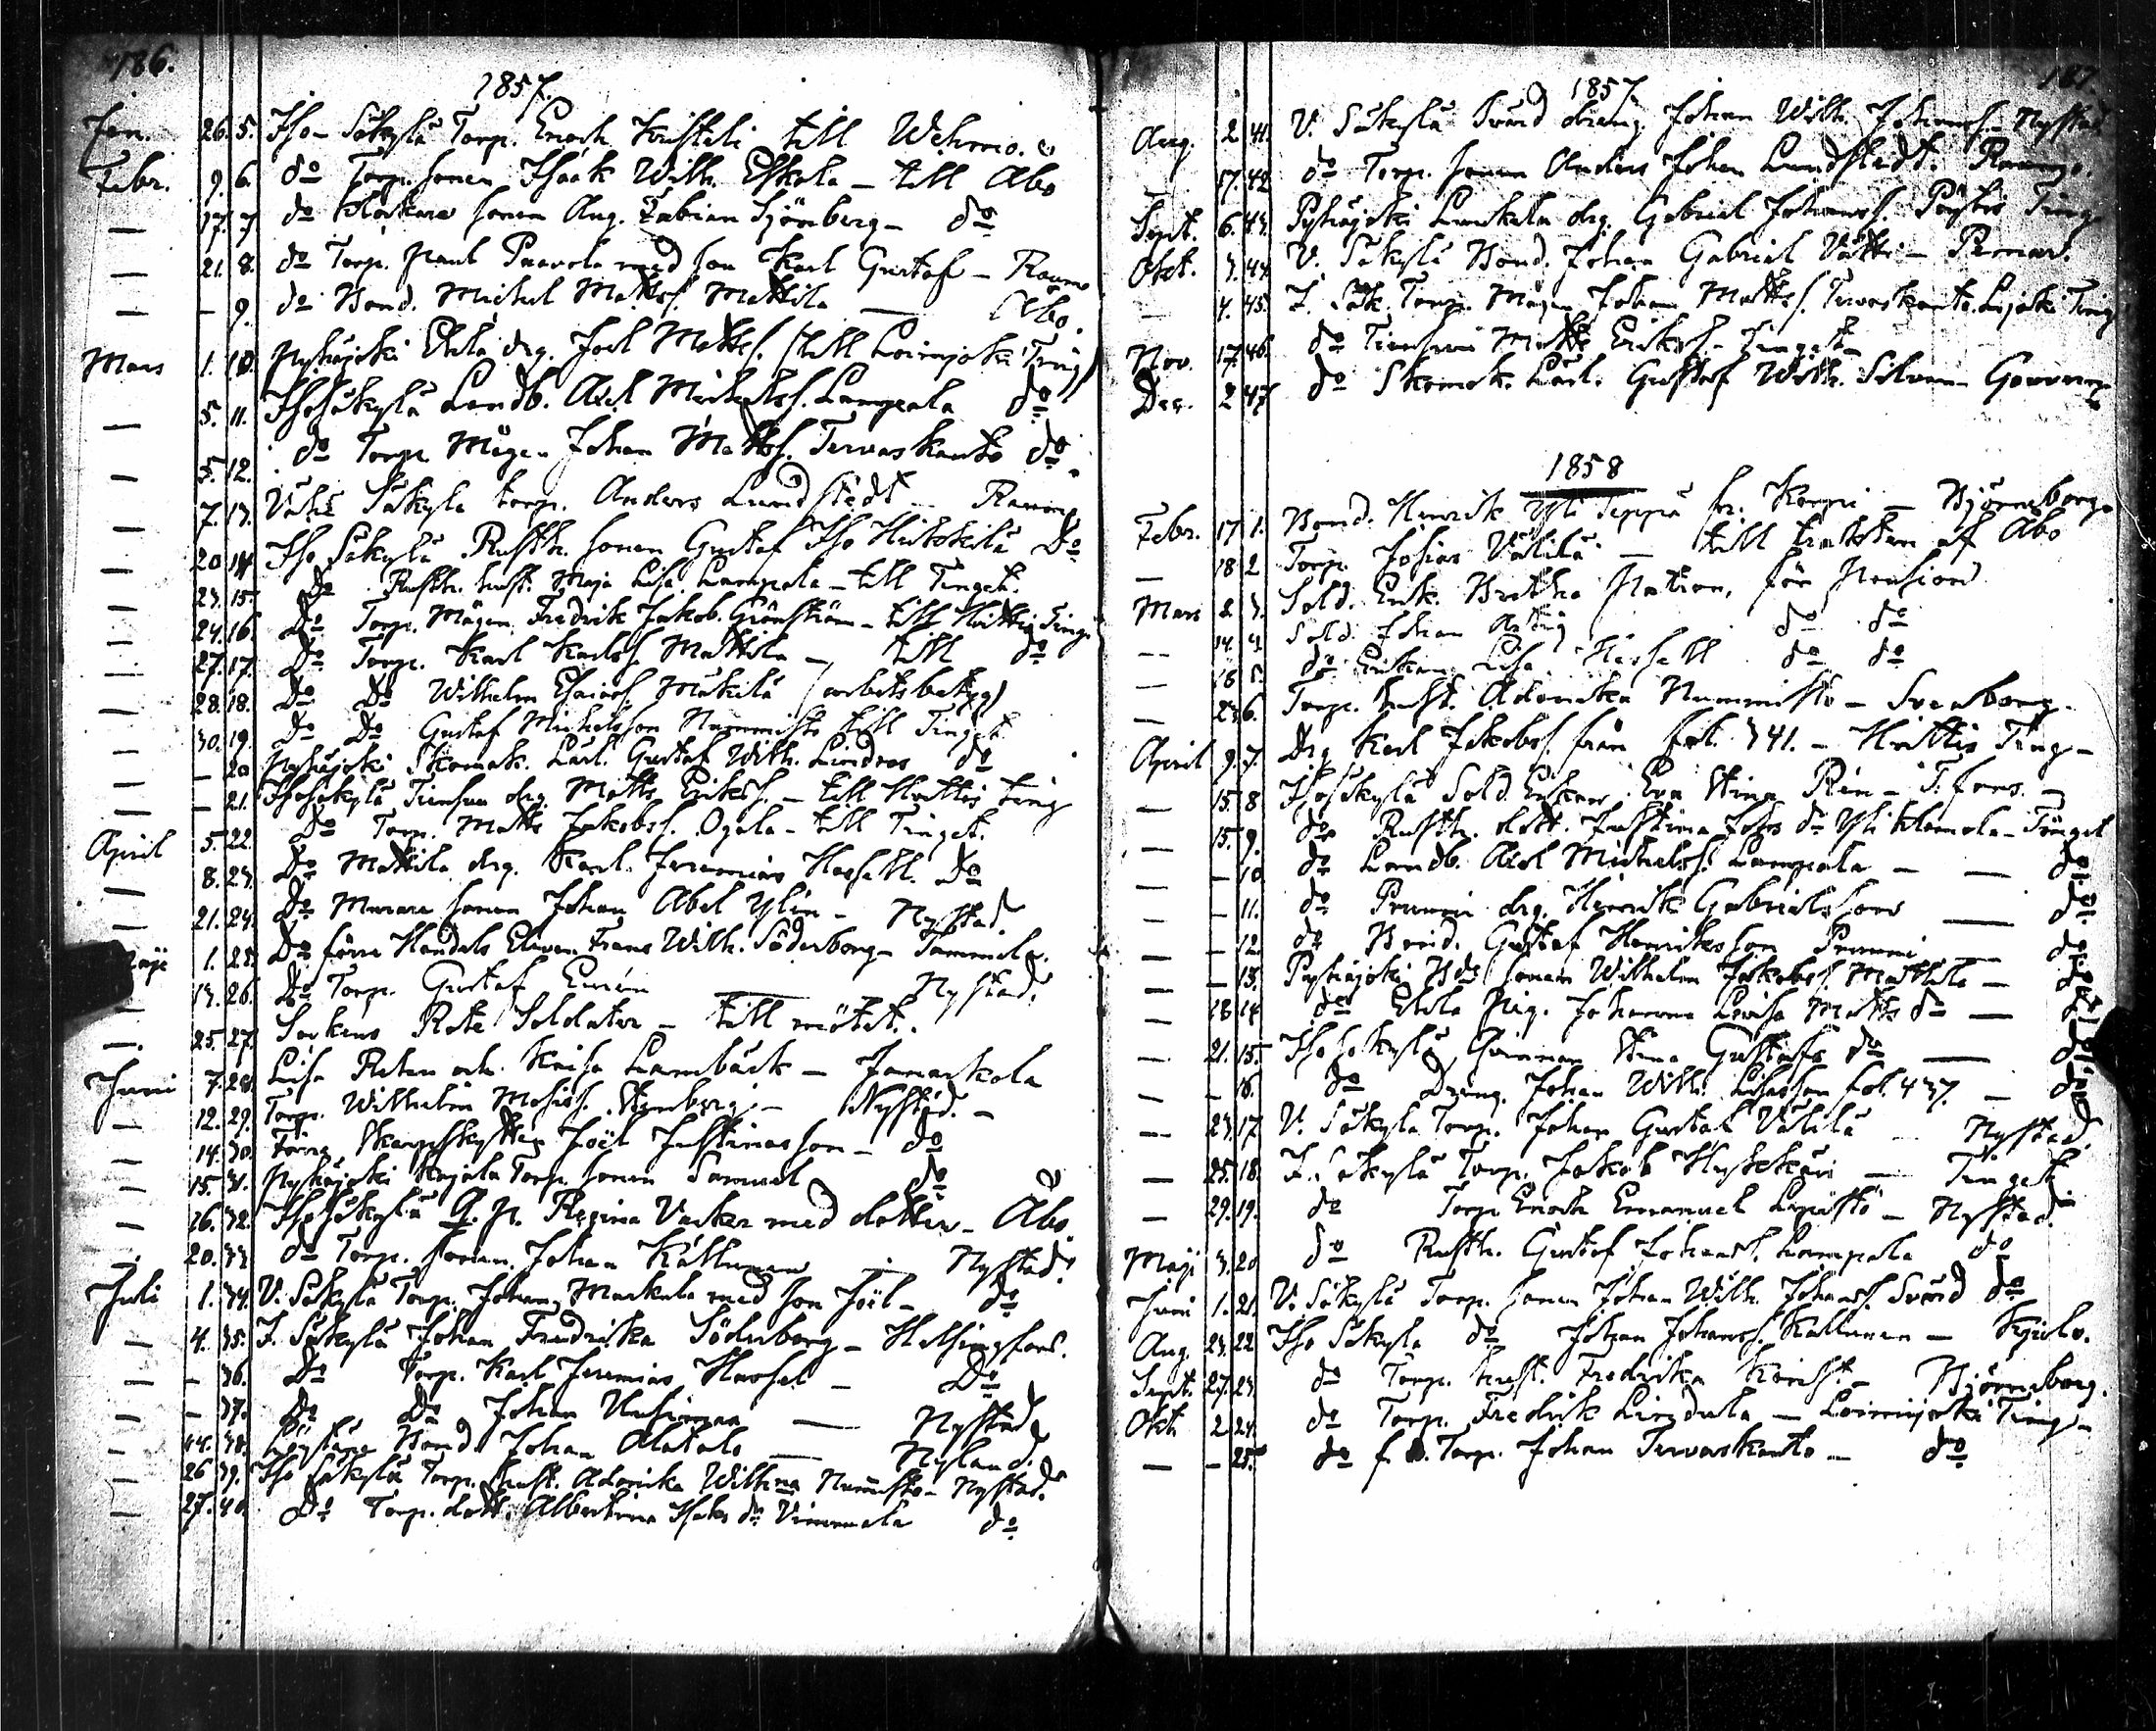 186.
1857.
Jan. 26. 5. Iso-Säkylä Torp. Enoch till Wehmo.
Febr. 9. 6. do Torp. sonen Isaak Wilh. Eskola - till Åbo
— 17. 7 do Klockare sonen Aug. Fabian Sjöberg - do
— 21. 8. do Torp. Paul Paavola med son Karl Gustaf - Raumo
— — 9. do Bond. Michel Matts. Mattila — Åbo.
Mars 1. 10. Pyhäjoki Ehtä drg. Joel Matts. (till Loimjoki Ting)
— 5. 11. Isosäkylä Landb. Axel Michelss. Lampala do
— 5. 12. do Torp. Mågen Johan Mattss. Tervaskanto do.
— 7. 13. Vähä Säkylä torp. Anders Lundstedt - Raumo
— 20 14 Iso Säkylä Rusth. sonen Gustaf Iso Do
— 23. 15. Do Rusth. hust. Maja Lisa Lampala - till Tinget.
— 24. 16. Do Torp. Mågen Fredrik Jakob. Grönström - till Hvittis Ting
— 27. 17. Do Torp. Karl Karlss. Mattila — till do
— 28. 18. Do Do Wilhelm Esaiass. Mäkilä (arbetsbetyg)
— 30. 19. Do Do Gustaf Michelsson Nummisto till Tinget
— — 20 Pyhäjoki Skomak. Lärl. Gustaf Wilh. Lindros do
— — 21. Isosäkylä drg. Matts Erikss. - till Hvittis ting
April 5. 22. Do Torp. Matts Jakobss. Ojala - till Tinget.
— 8. 23. Do Mattila drg. Karl Jeremias Hassell. Do
— 21. 24. Do Murare sonen Johan Abel Ylén - Nystad.
Maji 1. 25. Do förre Handels Eleven Frans Wilh. Söderborg - Tammela.
— 13. 26. Do Torp. Gustaf — Nystad.
— 25. 27. Sockens Rote Soldater - till mötet.
Juni 7. 28. Lisa och Kaisa Lambäck -
— 12. 29. Torp. Wilhelm Mosiss. Stenberg - Nystad. -
— 14. 30. Förra Skarpskytten Joël Justinasson - do
— 15. 31. Pyhäjoki Torp. sonen Samuel do
— 16. 32. Isosäkylä Q. P. Regina Vacker med dotter - Åbo
— 20. 33. do Torp. sonen Johan Källunen - Nystad.
Juli 1. 34. V. Säkylä Torp. Johan Markula med son Joël - do
— 4. 35. I. Säkylä Johan Fredrika Söderborg - Helsingfors.
— — 36. Do Torp. Karl Jeremias Hassel - Do
— — 37. Do Do Johan — Nystad
— 38. Bond. Johan Alatalo — Nyland.
— 26 39. Iso Säkylä Torp. hust. Adamika Wilhma Nummisto - Nystad.
— 27. 40. Do Torp. dott. Albertina Isaks dr Vimmala do
187.
1857
Aug. 2 41. V. Säkylä Svärd dräng. Johan Wilh. Johanss. - Nystad
17. 42 do Torp. sonen Anders Johan Lundstedt. Raumo.
Sept. 6. 43. Pyhäjoki drg. Gabriel Johanss. Pöytis Ting
Okt. 3. 44. V. Säkylä Bond. Johan Gabriel Vätti - Pemar.
— 4. 45. I. Säk. Torp. Mågen Johan Mattss. Tervaskanto. Ljoki Ting
Nov. 17. 46. do Matts Erikss. - Tinget -
Dec. 2 47 do Skomak. Lärl. Gustaf Wilh. Silven -
1858
Febr. 17 1. Bond. Henrik Yli Seppä fr. — Björneborg.
— 18 2 Torp. Josias Välilä — till trakten af Åbo
Mars 2 3. Sold. Enk. för Pension
— 14. 4 Sold. Johan do do
— 18 5. do Enkan Lisa Hassell do do
— 23 6. Torp. hust. Adamika Nummisto - Sveaborg.
April 9. 7. Drg Karl Jakobss. från fol. 341. - Hvittis Ting -
— 15. 8 Isosäkylä Sold. Enkan Eva Stina - T. fors. -
— 15. 9. do Rusth. dott. Justina Johs dr Yli Klemola - Tinget
— — 10 do Landb. Axel Michelss. Lampala — do
— — 11. do Prunni drg. Henrik Gabrielsson — do
— — 12 do Bond. Gustaf Henriksson Prunni — do
— — 13. Pyhäjoki Bds sonen Wilhelm Jakobss. Mattila — do
— 18 14 do Ehtä Pig. Johanna Lovisa Matts dr — do
— 21. 15. Isosäkylä Qvinnan Stina Gustafs dr — do
— — 16. do Dräng. Johan Wilh. fol. 437. - do
— 23. 17 V. Säkylä Torp. Johan Gustaf Välilä — Nystad.
— 25. 18. I. Säkylä Torp. Jakob — Tinget
— 29. 19. do Torp Enoch Emanuel Lepistö - Nystad.
Maji 3. 20 do Rusth. Gustaf Johanss. Lampala do
Juni 1. 21. V. Säkylä Torp. sonen Johan Wilh. Johanss. Svärd do
Aug. 23. 22 Iso Säkyla do Johan Johanss. Källunen - Kjulo.
Sept. 27. 23. do Torp. hust. Fredrika - Björneborg.
Okt. 2 24. do Torp. Fredrik Lindula - Loimijoki Ting -
— — 25. do f. d. Torp. Johan Tervaskanto - do